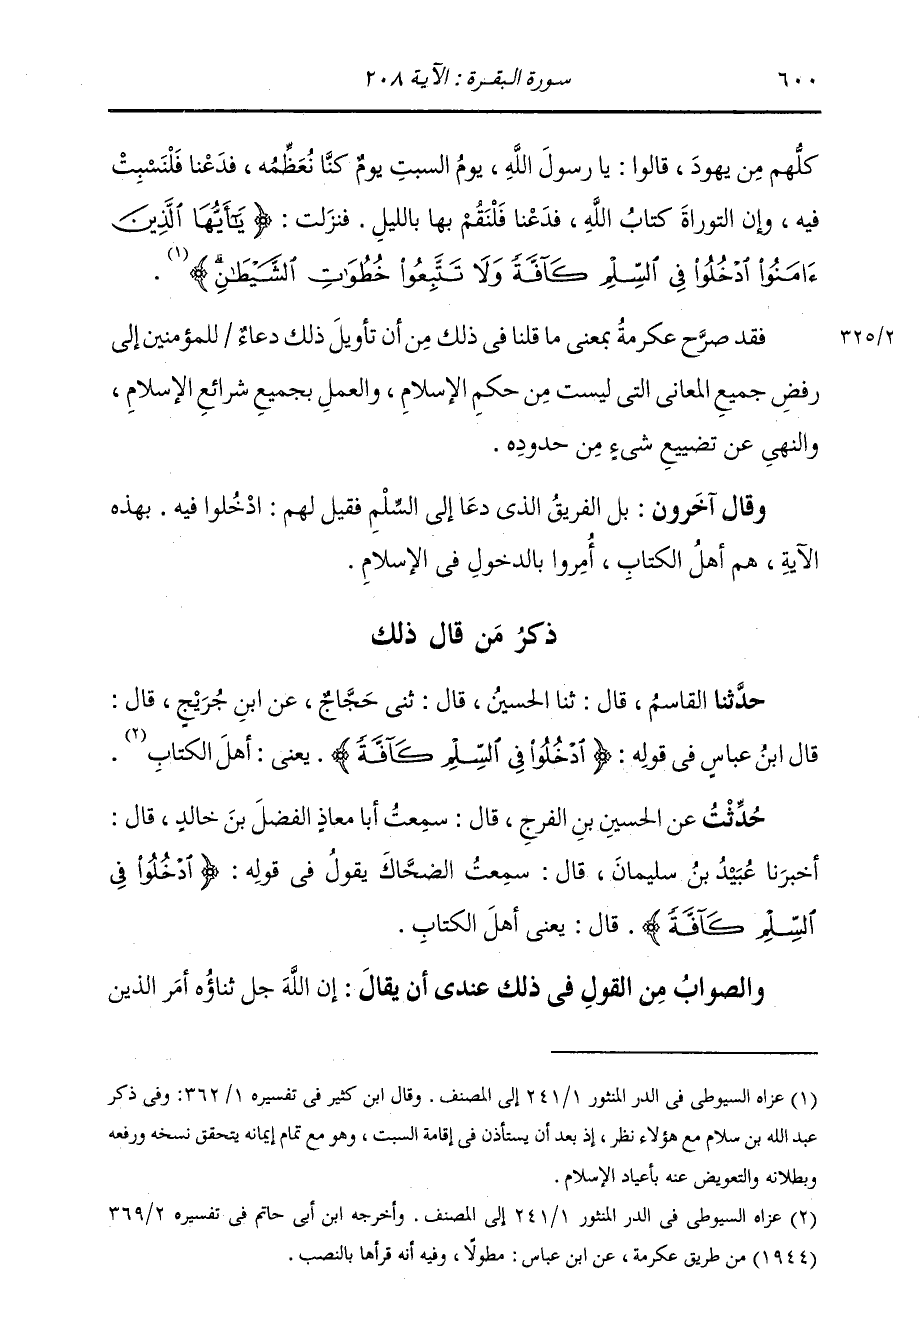 ٦٠٠ سورة البقرة : الآية ٢٠٨
كلُّهم مِن يهودَ ، قالوا : يا رسولَ اللَّهِ ، يومُ السبتِ يومٌ كنَّا نُعَظِّمُه ، فدَعْنا فَلْنَسْبِتْ
فيه ، وإن التوراةَ كتابُ اللَّهِ ، فدَعْنا فَلْنَقُمْ بها بالليلِ . فنزلت : ﴿ يَٰٓأَيُّهَا ٱلَّذِينَ
ءَامَنُوا۟ ٱدْخُلُوا۟ فِى ٱلسِّلْمِ كَآفَّةً وَلَا تَتَّبِعُوا۟ خُطُوَٰتِ ٱلشَّيْطَٰنِۚ ﴾(١) .
٣٢٥/٢ فقد صرَّح عكرمةُ بمعنى ما قلنا فى ذلك مِن أن تأويلَ ذلك دعاءٌ / للمؤمنين إلى
رفضِ جميعِ المعانى التى ليست مِن حكمِ الإسلامِ ، والعملِ بجميعِ شرائعِ الإسلامِ ،
والنهىِ عن تضييعِ شىءٍ مِن حدودِه .
وقال آخَرون : بل الفريقُ الذى دعَا إلى السِّلْمِ فقيل لهم : ادْخُلوا فيه . بهذه
الآيةِ ، هم أهلُ الكتابِ ، أُمِروا بالدخولِ فى الإسلامِ .
ذكرُ مَن قال ذلك
حدَّثنا القاسمُ ، قال : ثنا الحسينُ ، قال : ثنى حَجَّاجٌ ، عن ابنِ جُرَيْجٍ ، قال :
قال ابنُ عباسٍ فى قولِه : ﴿ ٱدْخُلُوا۟ فِى ٱلسِّلْمِ كَآفَّةً ﴾ . يعنى : أهلَ الكتابِ(٢) .
حُدِّثْتُ عن الحسينِ بنِ الفرجِ ، قال : سمِعتُ أبا معاذٍ الفضلَ بنَ خالدٍ ، قال :
أخبرَنا عُبَيْدُ بنُ سليمانَ ، قال : سمِعتُ الضحَّاكَ يقولُ فى قولِه : ﴿ ٱدْخُلُوا۟ فِى
ٱلسِّلْمِ كَآفَّةً ﴾ . قال : يعنى أهلَ الكتابِ .
والصوابُ مِن القولِ فى ذلك عندى أن يقالَ : إن اللَّهَ جل ثناؤُه أمَر الذين
(١) عزاه السيوطى فى الدر المنثور ٢٤١/١ إلى المصنف . وقال ابن كثير فى تفسيره ٣٦٢/١: وفى ذكر
عبد الله بن سلام مع هؤلاء نظر ، إذ بعد أن يستأذن فى إقامة السبت ، وهو مع تمام إيمانه يتحقق نسخه ورفعه
وبطلانه والتعويض عنه بأعياد الإسلام .
(٢) عزاه السيوطى فى الدر المنثور ٢٤١/١ إلى المصنف . وأخرجه ابن أبى حاتم فى تفسيره ٣٦٩/٢
(١٩٤٤) من طريق عكرمة ، عن ابن عباس : مطولًا ، وفيه أنه قرأها بالنصب .